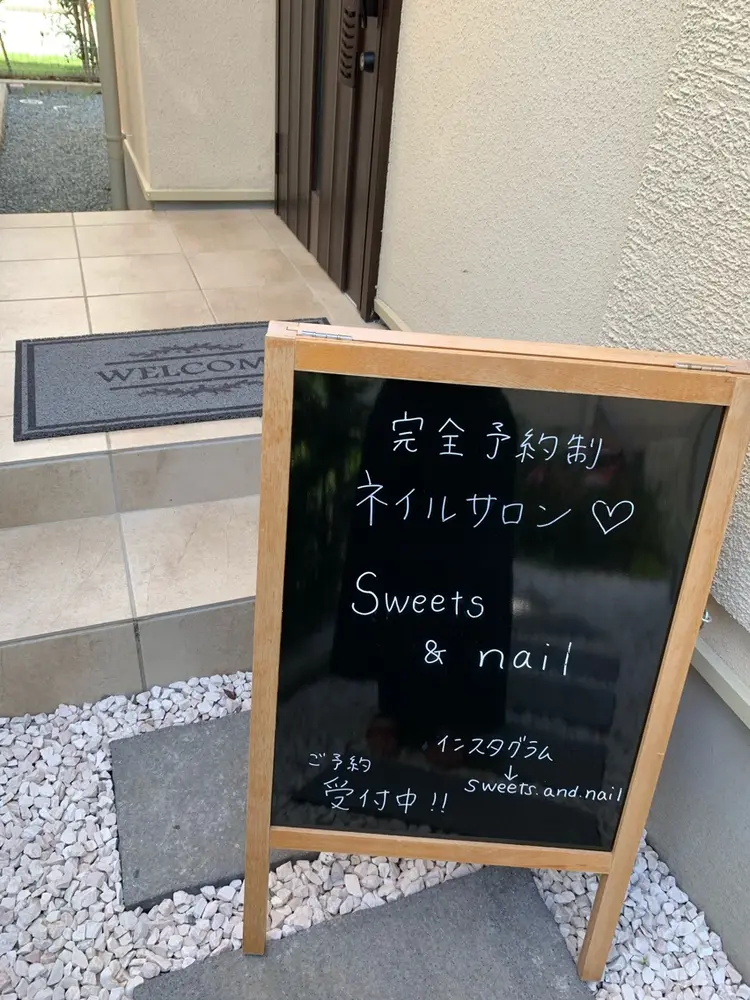 WELCOM
完全予約制
ネイルサロン♡
Sweets
& nail
インスタグラム
↓
sweets.and.nail
ご予約
受付中!!